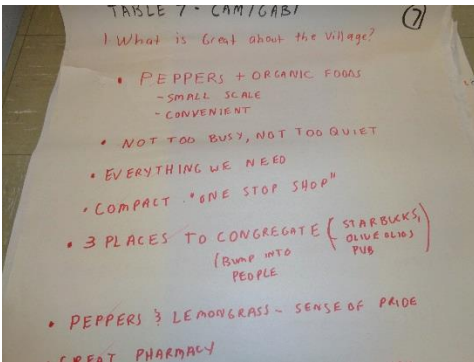 TABLE 7 - CAM/GABI
7
1 What is Great about the Village?
• PEPPERS + ORGANIC FOODS
- SMALL SCALE
- CONVENIENT
• NOT TOO BUSY, NOT TOO QUIET
• EVERYTHING WE NEED
• COMPACT "ONE STOP SHOP"
• 3 PLACES TO CONGREGATE (STARBUCKS,
OLIVE OLIOS
PUB)
(BUMP INTO
PEOPLE
• PEPPERS & LEMONGRASS - SENSE OF PRIDE
GREAT PHARMACY